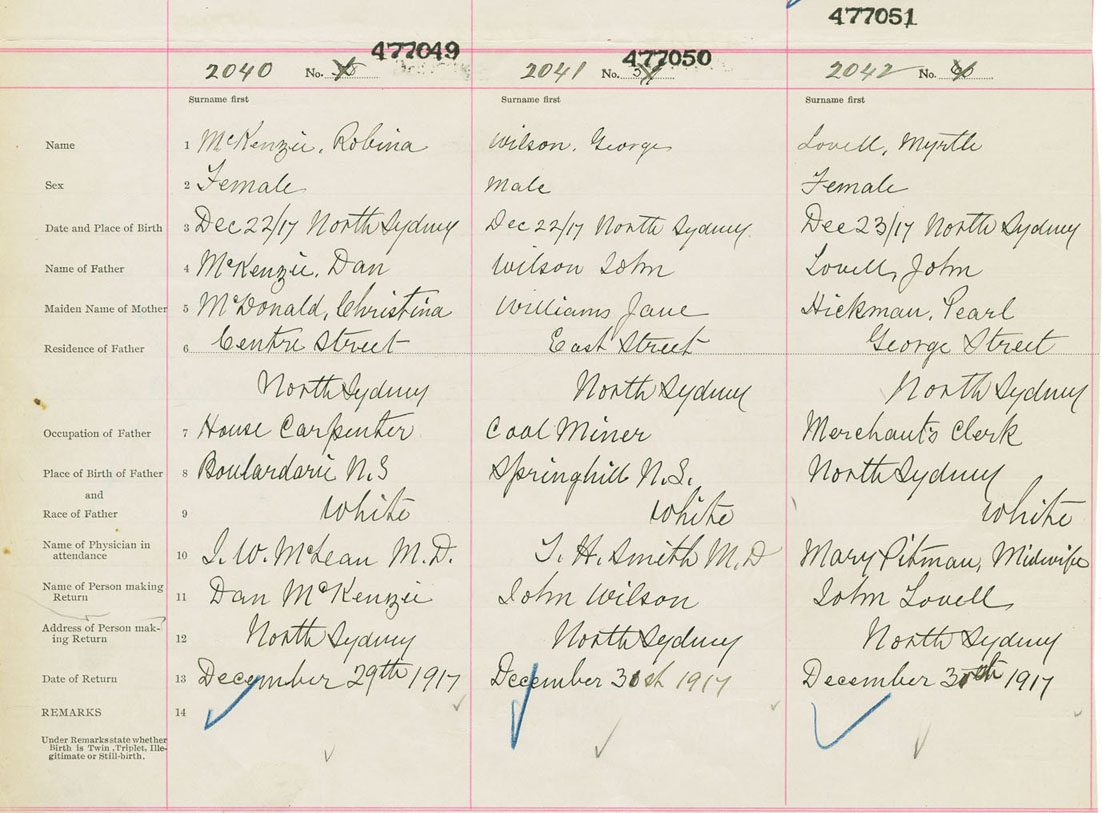 477049 477050 477051
2040 No. 2041 No. 2042 No.
Surname first Surname first Surname first
Name 1 McKenzie, Robina Wilson, George Lovell, Myrtle
Sex 2 Female Male Female
Date and Place of Birth 3 Dec 22/17 North Sydney Dec 22/17 North Sydney. Dec 23/17 North Sydney
Name of Father 4 McKenzie, Dan Wilson John Lovell, John
Maiden Name of Mother 5 McDonald, Christina Williams Jane Hickman, Pearl
Residence of Father 6 Centre Street East Street George Street
North Sydney North Sydney North Sydney
Occupation of Father 7 House Carpenter Coal Miner Merchants Clerk
Place of Birth of Father 8 Boulardarie N.S Springhill N.S. North Sydney
and
Race of Father 9 White White White
Name of Physician in
attendance 10 McLean M.D. Smith M.D Mary Pitman, Midwife
Name of Person making
Return 11 Dan McKenzie John Wilson John Lovell
Address of Person mak-
ing Return 12 North Sydney North Sydney North Sydney
Date of Return 13 December 29th 1917 December 1917 December 1917
REMARKS 14
Under Remarks state whether
Birth is Twin, Triplet, Ille-
gitimate or Still-birth.